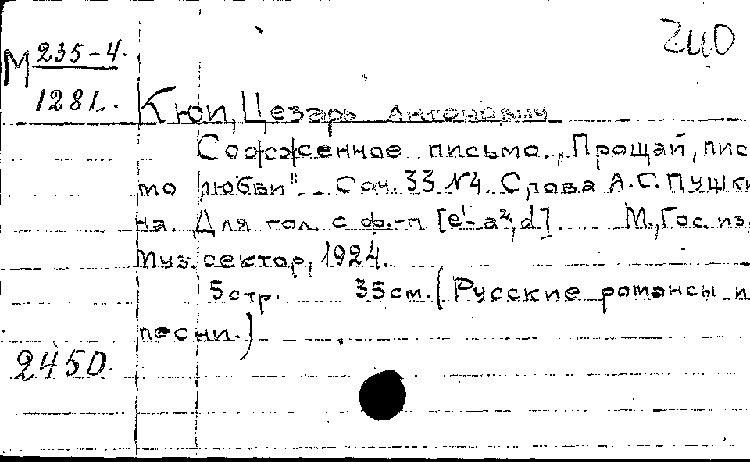 М 235-4.
1281.
2Ц0
Кюи, Цезарь Антонович
Сожженное письмо. „Прощай, пис
мо любви". Соч. 33 №4. Слова А.С. Пушки
на. Для гол. с ф.-п [e¹-a²,d]. М., Гос. из.
Муз. сектор, 1924.
5 стр. 35 см. (Русские романсы и
песни.)
2450.